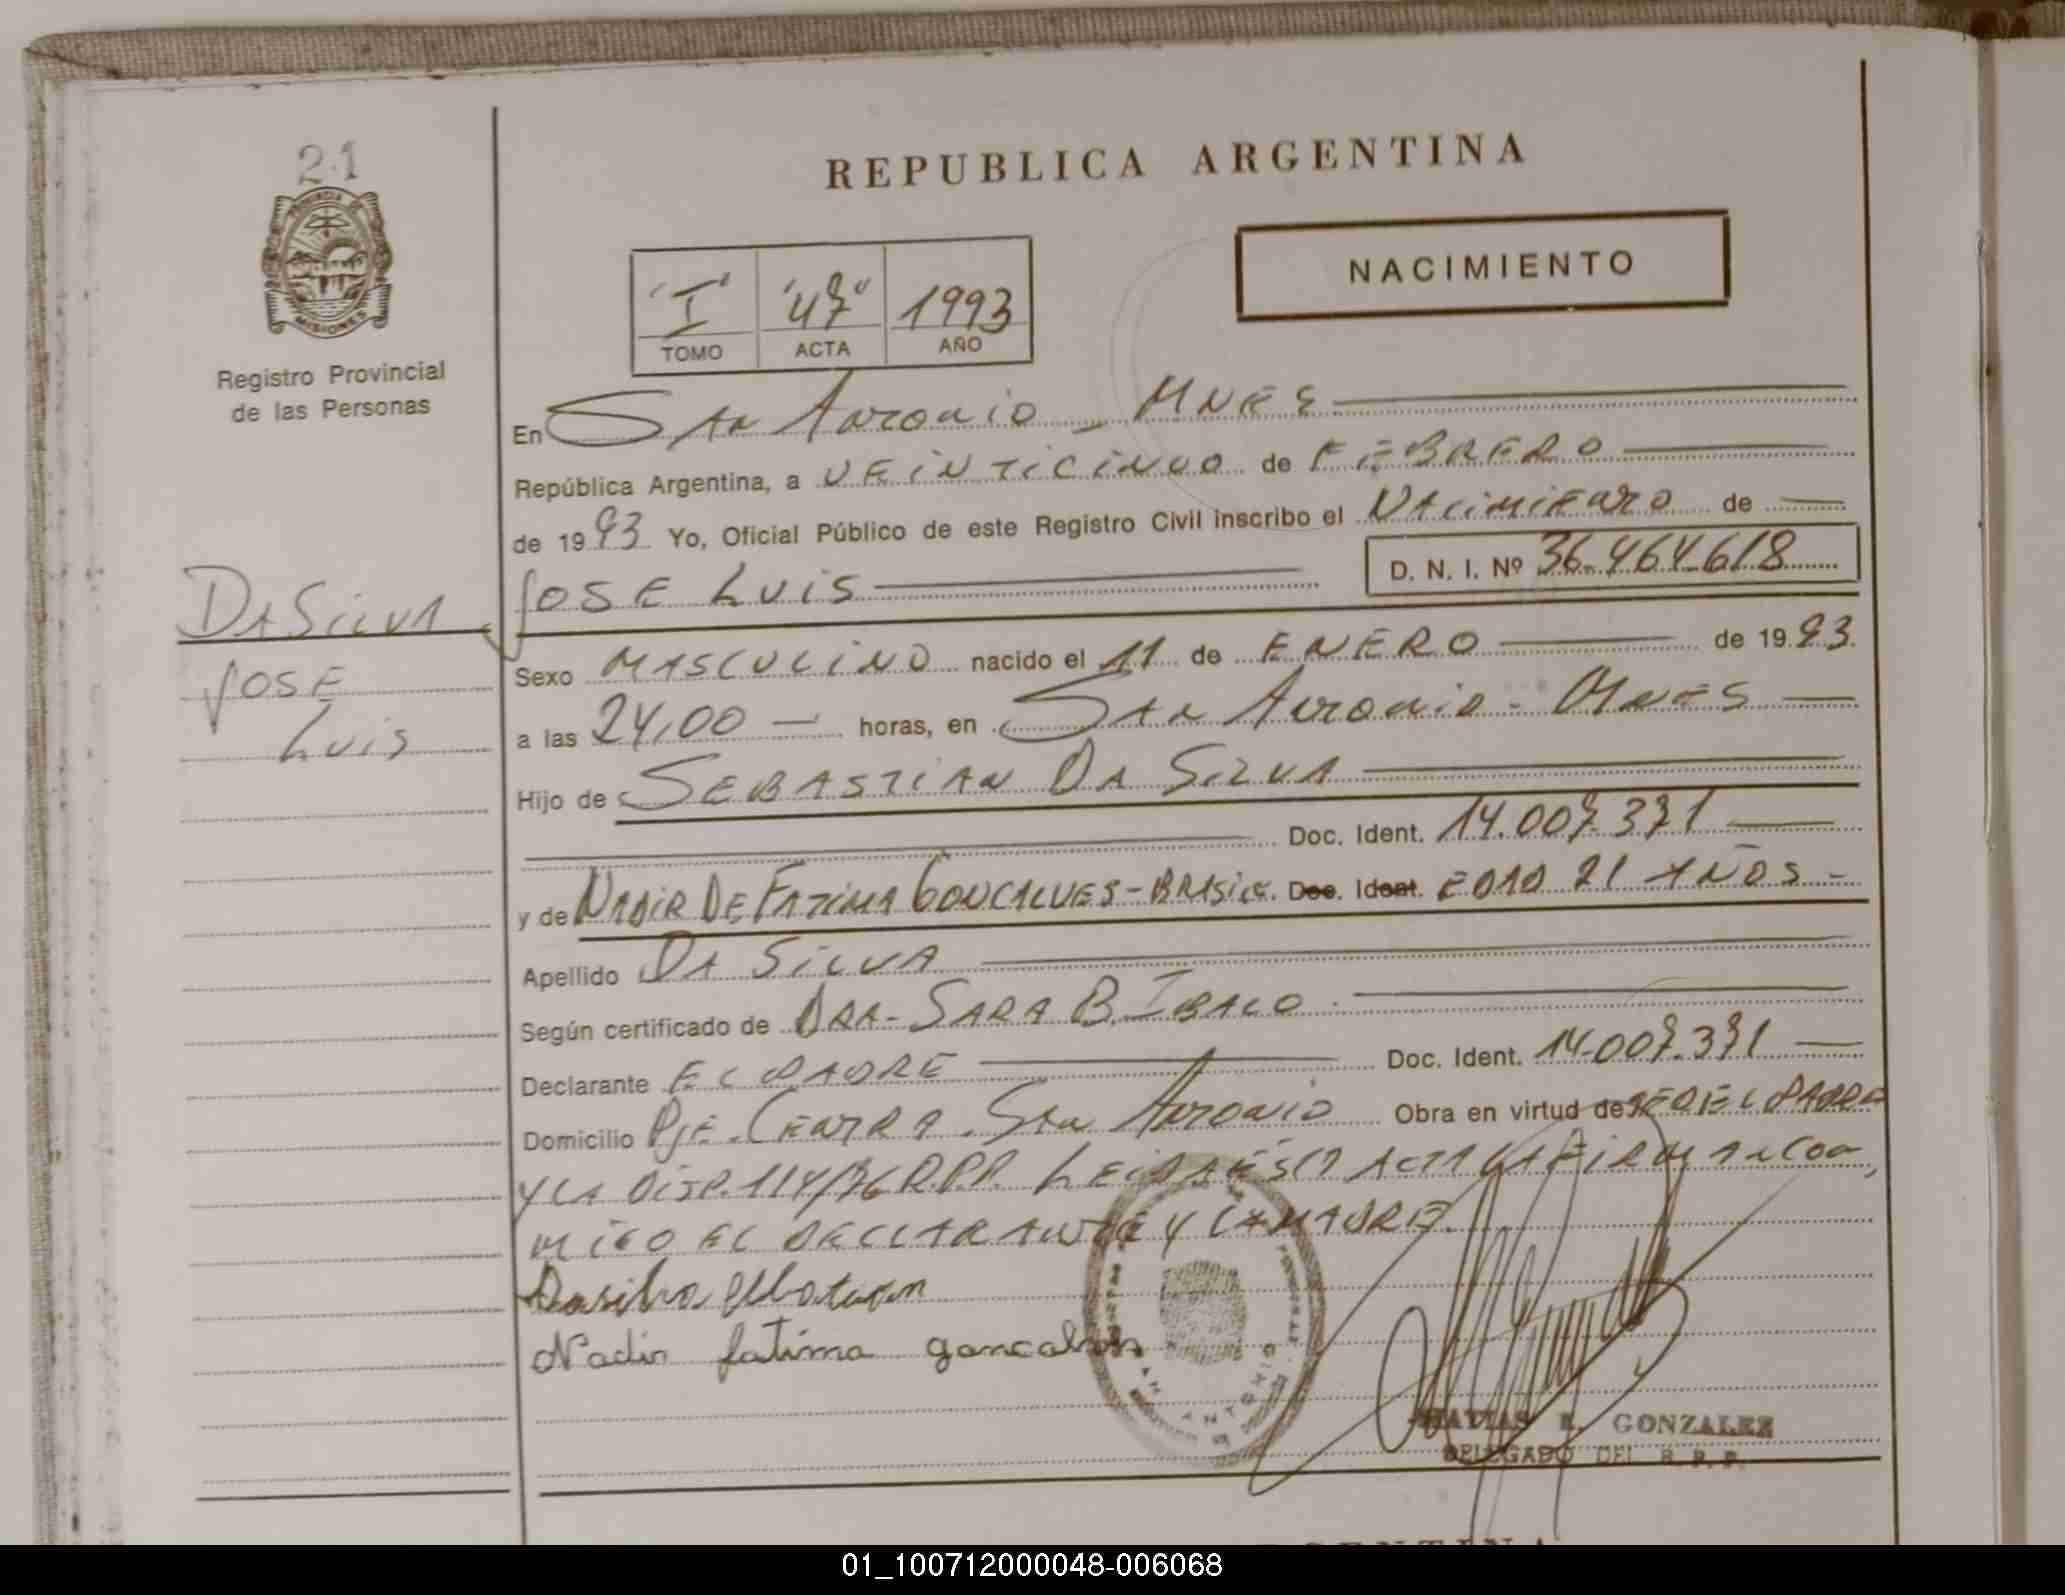 21
PROVINCIA DE
MISIONES
Registro Provincial
de las Personas
DA SILVA
JOSE
LUIS
REPUBLICA ARGENTINA
NACIMIENTO
"I" "47" 1993
TOMO ACTA AÑO
En SAN ANTONIO - MNES
República Argentina, a VEINTICINCO de FEBRERO
de 1993 Yo, Oficial Público de este Registro Civil inscribo el NACIMIENTO de
JOSE LUIS D. N. I. Nº 36.464.618
Sexo MASCULINO nacido el 11 de ENERO de 1993.
a las 24,00 horas, en SAN ANTONIO - MNES
Hijo de SEBASTIAN DA SILVA
Doc. Ident. 14.007.371
y de NADIR DE FATIMA GONCALVES - BRASILE. Doc. Ident. EDAD 21 AÑOS -
Apellido DA SILVA
Según certificado de DRA - SARA B.
Declarante EL PADRE Doc. Ident. 14.007.371
Domicilio PJE. SAN ANTONIO Obra en virtud de PED EL PADRE
Y LA DISP. 114/76 R.P.P. LEIDA ESTA ACTA LA FIRMAN CON
MIGO EL DECLARANTE Y LA MADRE.
Dasilva
Nadir fatima goncalves
SAN ANTONIO
MATIAS E. GONZALEZ
DELEGADO DEL R. P. P.
01_100712000048-006068